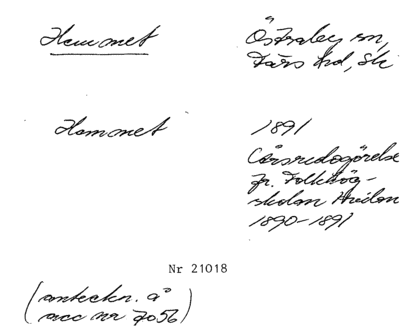 Hemmet
Östraby sn,
Färs hd, Sk
Hemmet
1891
Årsredogörelse
fr. Folkhög-
skolan Hvilan
1890-1891
Nr 21018
(anteckn. å
acc nr 7056)